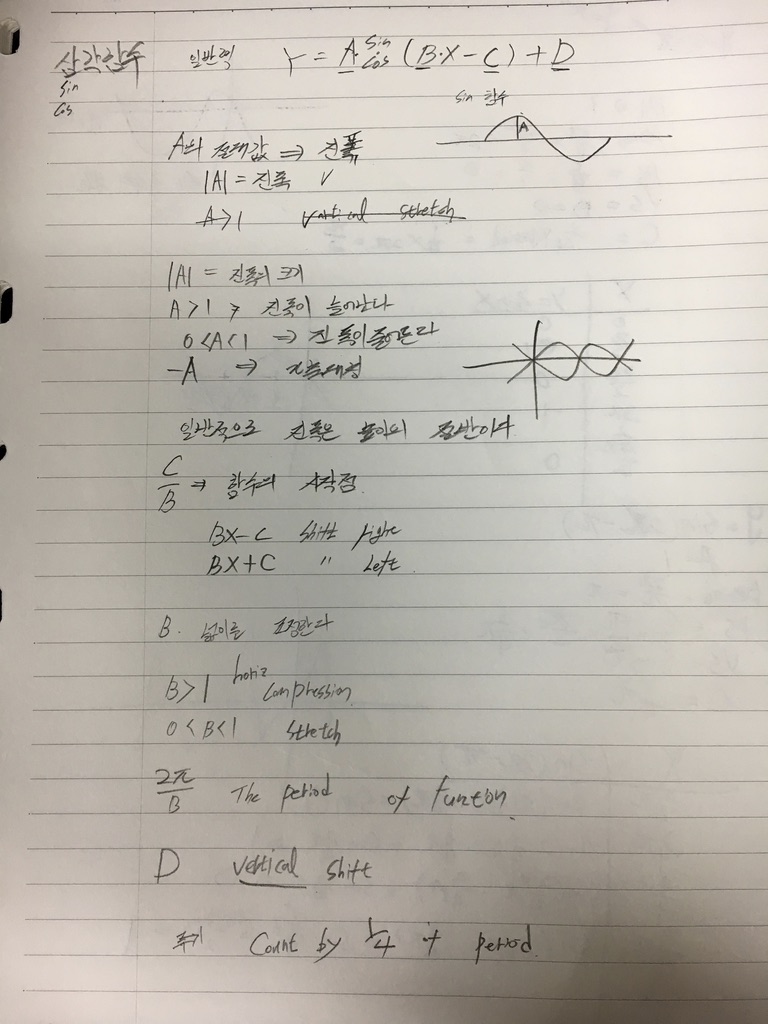 삼각함수 일반형 Y = A sin cos (B·X - C) + D
sin
cos
sin 함수
A
A의 절대값 ⇒ 진폭
|A| = 진폭 √
A>1 vertical stretch
|A| = 진폭의 크기
A>1 ⇒ 진폭이 늘어난다
0<A<1 ⇒ 진폭이 줄어든다
-A ⇒
일반적으로 진폭은 높이의 절반이다
C/B ⇒ 함수의 시작점.
BX-C shift right
BX+C " Left.
B. 넓이를 조정한다
B>1 horiz compression.
0<B<1 stretch
2π/B The period of funton.
D vertical shift
주기 Count by 1/4 of period.